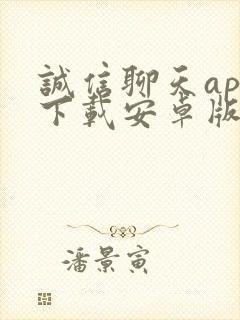 誠信聊天ap
下載安卓版
潘景寅